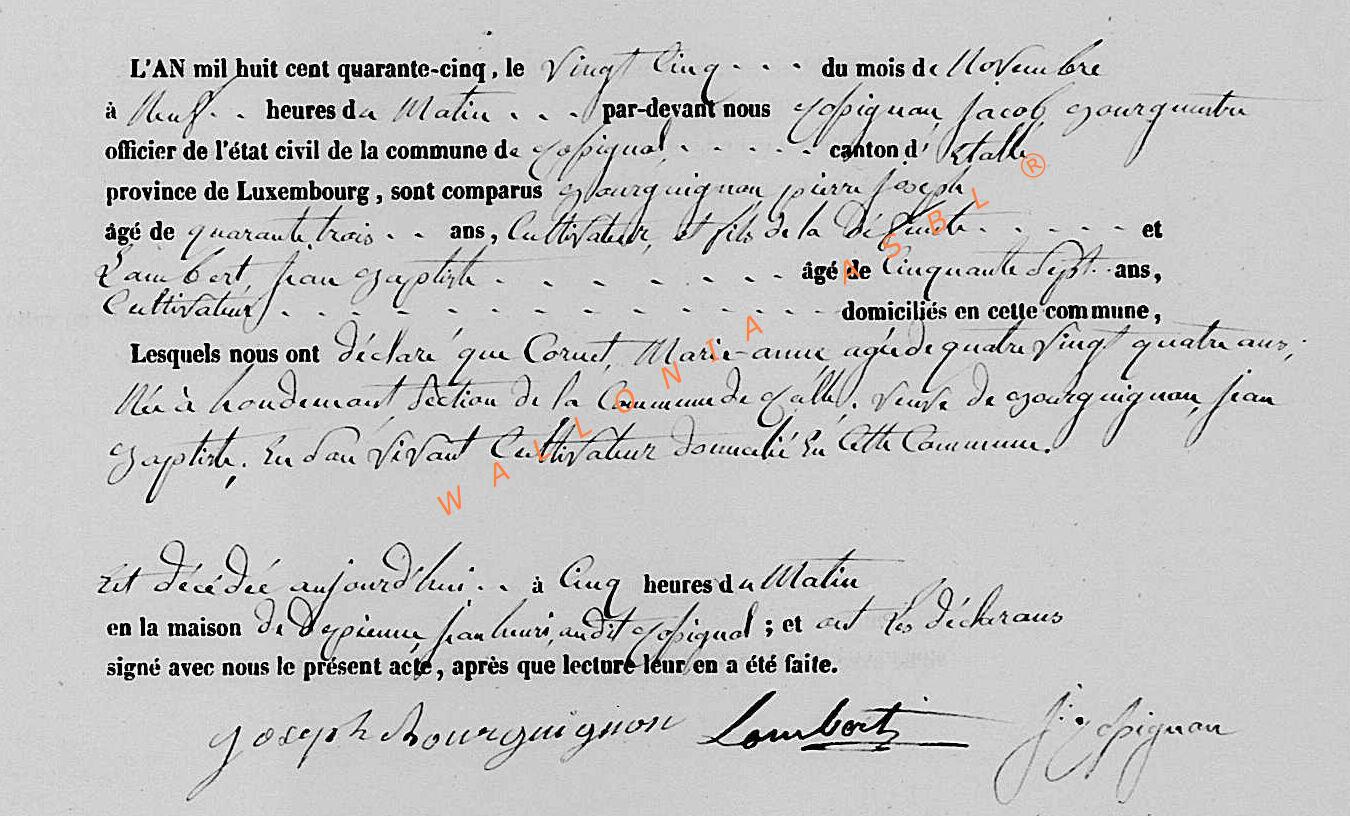 L'AN mil huit cent quarante-cinq, le Vingt Cinq . . . du mois de Novembre
à Neuf . . heures du Matin . . . par-devant nous Rossignon, Jacob, Bourgmestre
officier de l'état civil de la commune de Rossignol, . . . . . canton d' Etalle
province de Luxembourg, sont comparus Bourguignon, pierre Joseph
âgé de quarante trois . . ans, Cultivateur, et fils de la Défunte . . . . . et
Lambert, Jean Baptiste . . . . . . . . âgé de Cinquante Sept . . ans,
Cultivateur, . . . . . . . . . . . . . . domiciliés en cette commune,
Lesquels nous ont déclaré que Cornet, Marie-anne, agée de quatre Vingt quatre ans,
Née à houdemont, Section de la Commune de Rulles. Veuve de Bourguignon, Jean
Baptiste. En Son Vivant Cultivateur domicilié En Cette Commune.
Est décédée aujourd'hui . . à Cinq heures du Matin
en la maison de Jean henri, au dit Rossignol ; et ont les déclarans
signé avec nous le présent acte, après que lecture leur en a été faite.
Joseph Bourguignon Lambert J. Rossignon
WALLONIA ASBL ®